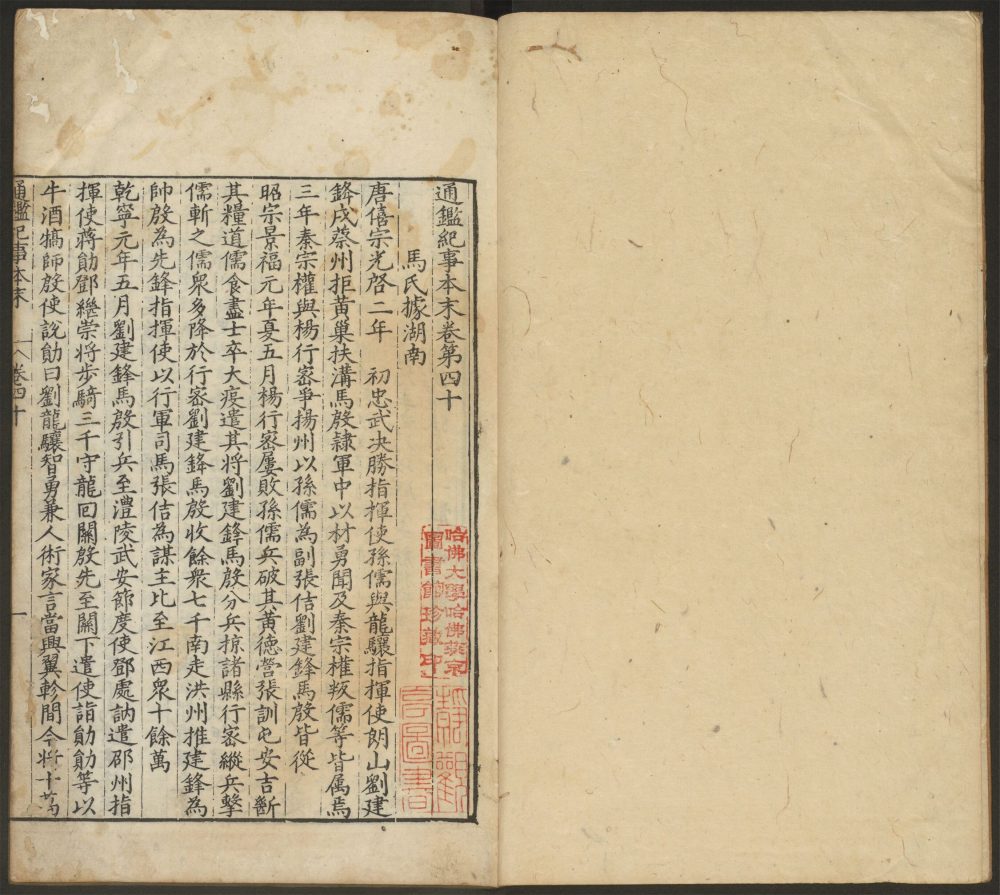 通鑑紀事本末卷第四十
馬氏據湖南
唐僖宗光啓二年　初忠武決勝指揮使孫儒與龍驤指揮使朗山劉建
鋒戍蔡州拒黃巢扶溝馬殷隸軍中以材勇聞及秦宗權叛儒等皆属焉
三年秦宗權與楊行密爭揚州以孫儒為副張佶劉建鋒馬殷皆從
昭宗景福元年夏五月楊行密屢敗孫儒兵破其黃德營張訓屯安吉斷
其糧道儒食盡士卒大疫遣其將劉建鋒馬殷分兵掠諸縣行密縱兵擊
儒斬之儒衆多降於行密劉建鋒馬殷收餘衆七千南走洪州推建鋒為
帥殷為先鋒指揮使以行軍司馬張佶為謀主比至江西衆十餘萬
乾寧元年五月劉建鋒馬殷引兵至澧陵武安節度使鄧處訥遣邵州指
揮使蔣勛鄧繼崇将步騎三千守龍回關殷先至關下遣使詣勛勛等以
牛酒犒師殷使說勛曰劉龍驤智勇兼人術家言當興翼軫間今将十萬
通鑑紀事本末　卷四十　一
哈佛大學哈佛燕京
圖書館珍藏印